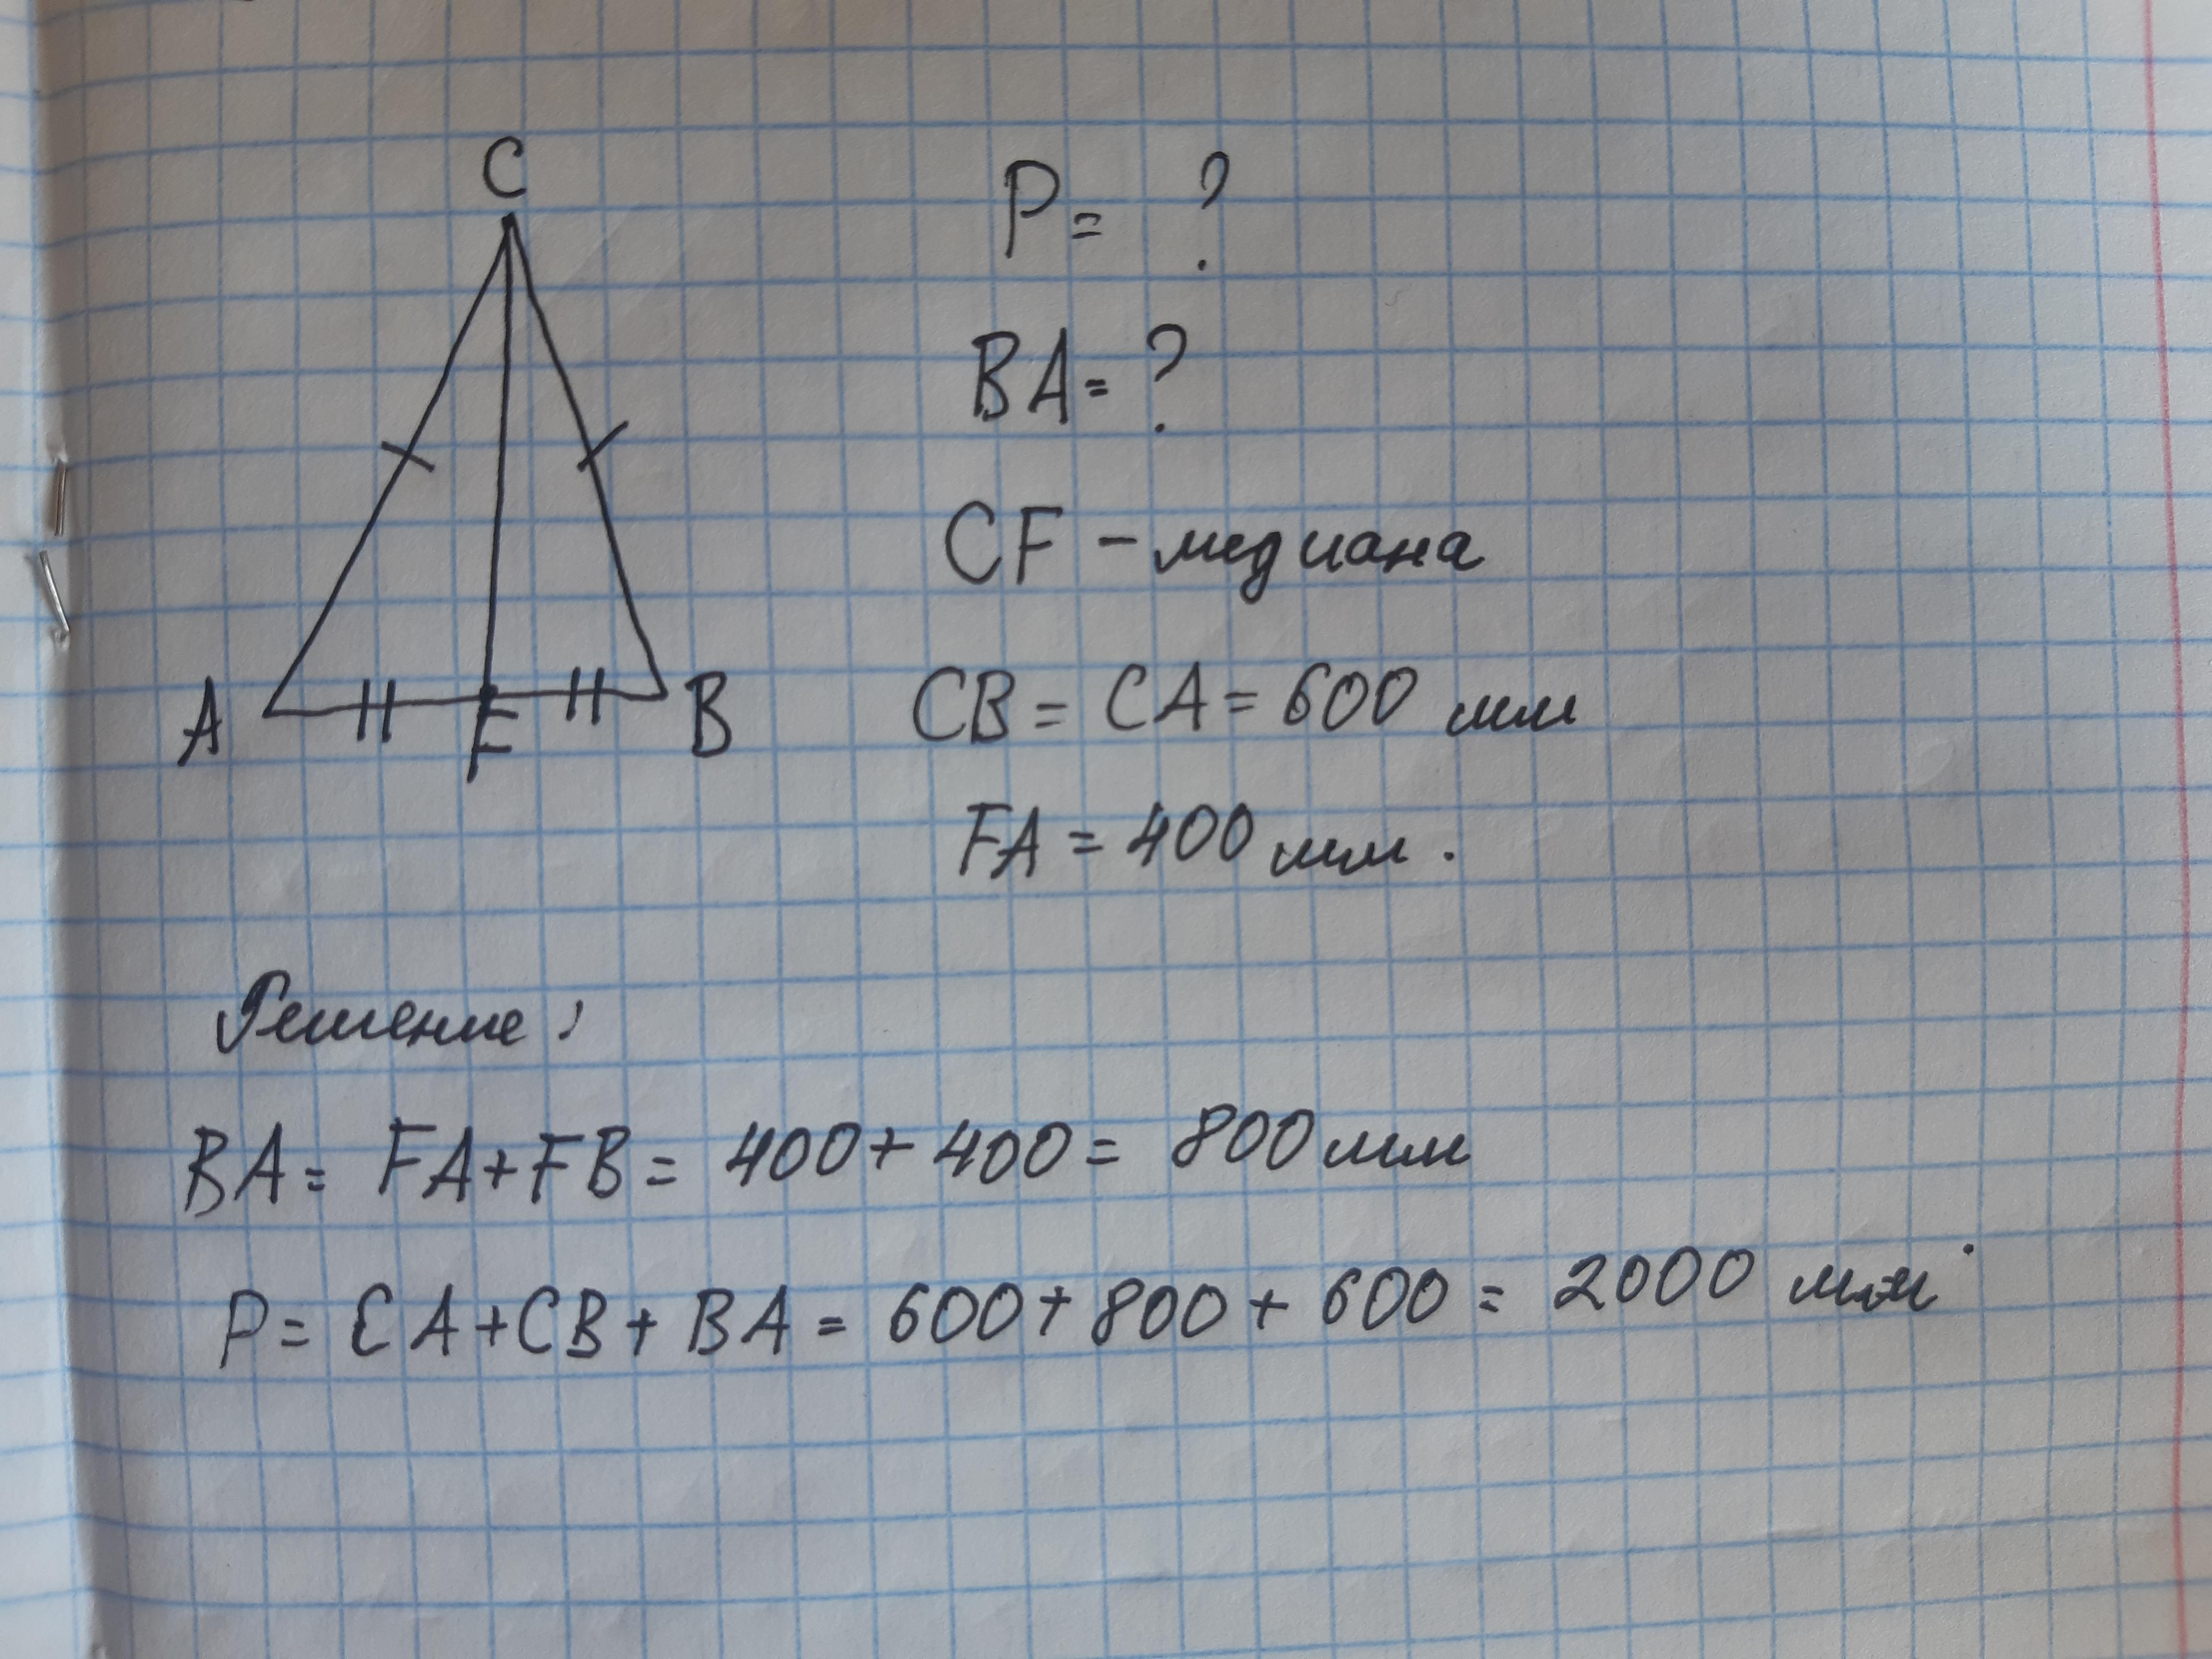 C
A
F
B
P = ?
BA = ?
CF - медиана
CB = CA = 600 мм
FA = 400 мм.
Решение:
BA = FA + FB = 400 + 400 = 800 мм
P = CA + CB + BA = 600 + 800 + 600 = 2000 мм